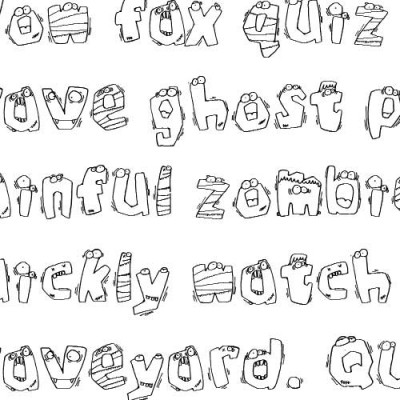 ow fox quiz
ave ghost p
ainful zombie
uickly watch
aveyard. Qu